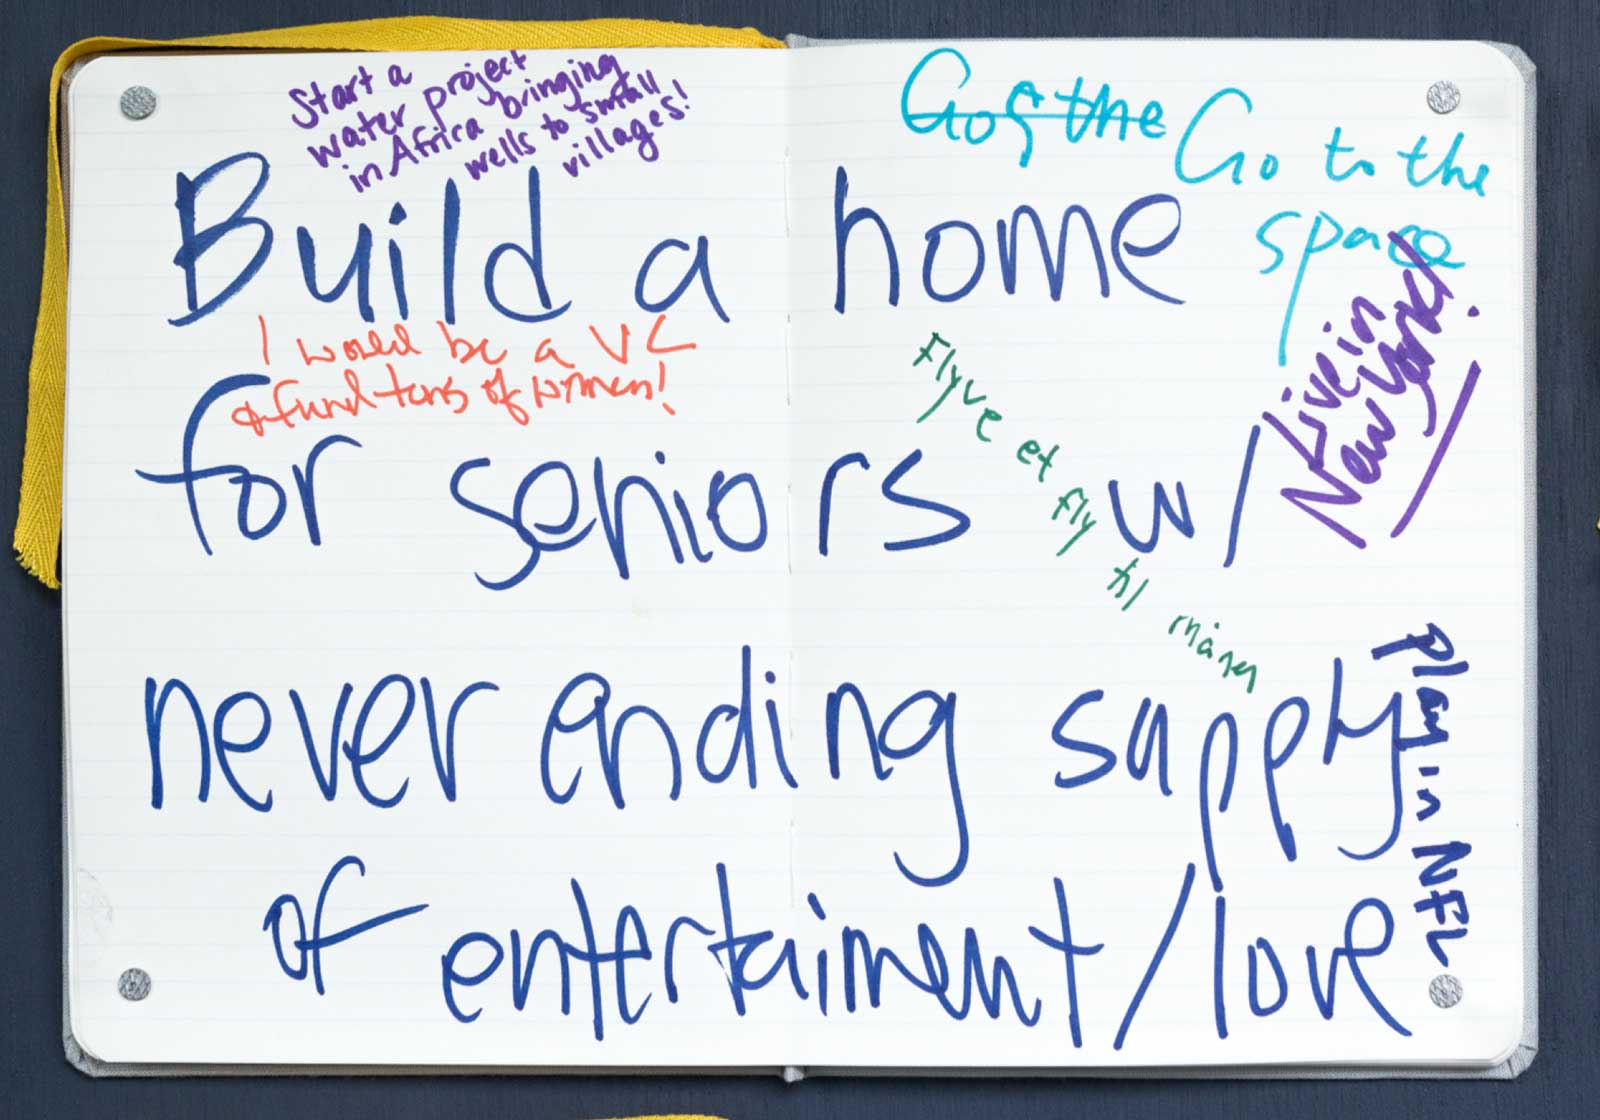 Start a
water project
in Africa bringing
wells to small
villages!
Gos the
Go to the
space
Build a home
I would be a VC
& fund tons of women!
for seniors w/
Live in
New York!
Flyve et fly til månen
never ending supply
of entertaiment/love
Play in NFL